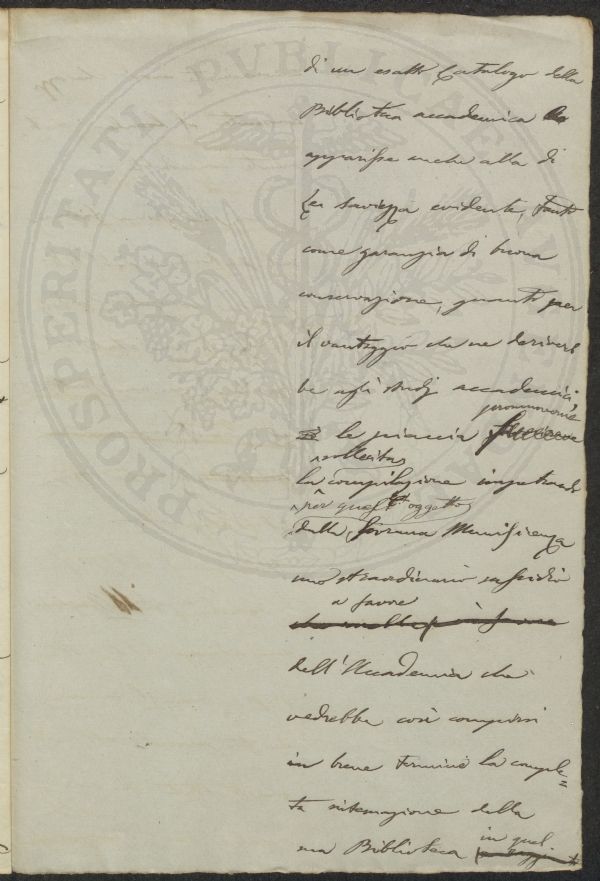 di un esatto Catalogo della
Biblioteca accademica
apparisse anche alla di
Lei saviezza evidente, tanto
come garanzia di buona
conservazione, quanto per
il vantaggio che ne derivereb
be agli studj accademici,
promuoverne
le piaccia
sollecitar
la compilazione impetrando
per quest' oggetto
dalla Sovrana Munificenza
uno straordinario sussidio
a favore
dell'Accademia che
vedrebbe così compirsi
in breve termine la comple=
ta sistemazione della
sua Biblioteca
in quel
PROSPERITATI PVBLICAE